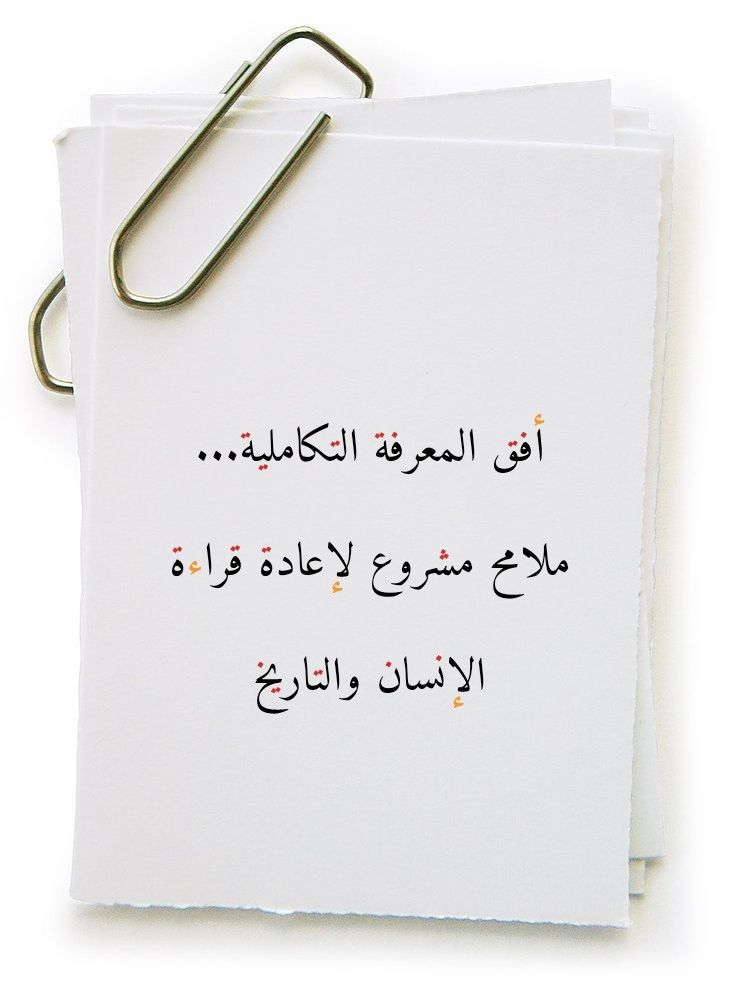 أفق المعرفة التكاملية...
ملامح مشروع لإعادة قراءة
الإنسان والتاريخ